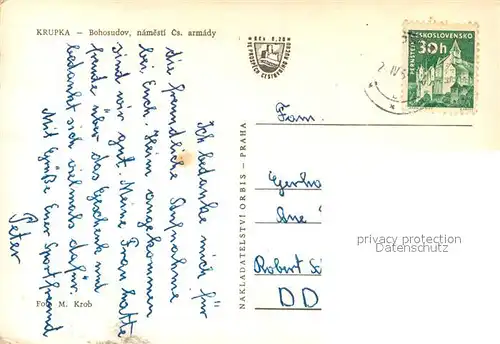 KRUPKA — Bohosudov, náměstí Čs. armády
Ich bedanke mich für
die freundliche Aufnahme
bei Euch. Heim angekommen
sind wir gut. Meine Frau hatte
freude über das Geschenk und
bedankt sich vielmals dafür.
Mit Grüße Euer Sportfreund
Peter
Foto M. Krob
NAKLADATELSTVÍ ORBIS - PRAHA
Kčs 0,70
VE PROSPĚCH CESTOVNÍHO RUCHU
ČESKOSLOVENSKO
30h
PERNŠTEJN
Fam.
Gerha
Ane
Robert Si
DD
privacy protection
Datenschutz